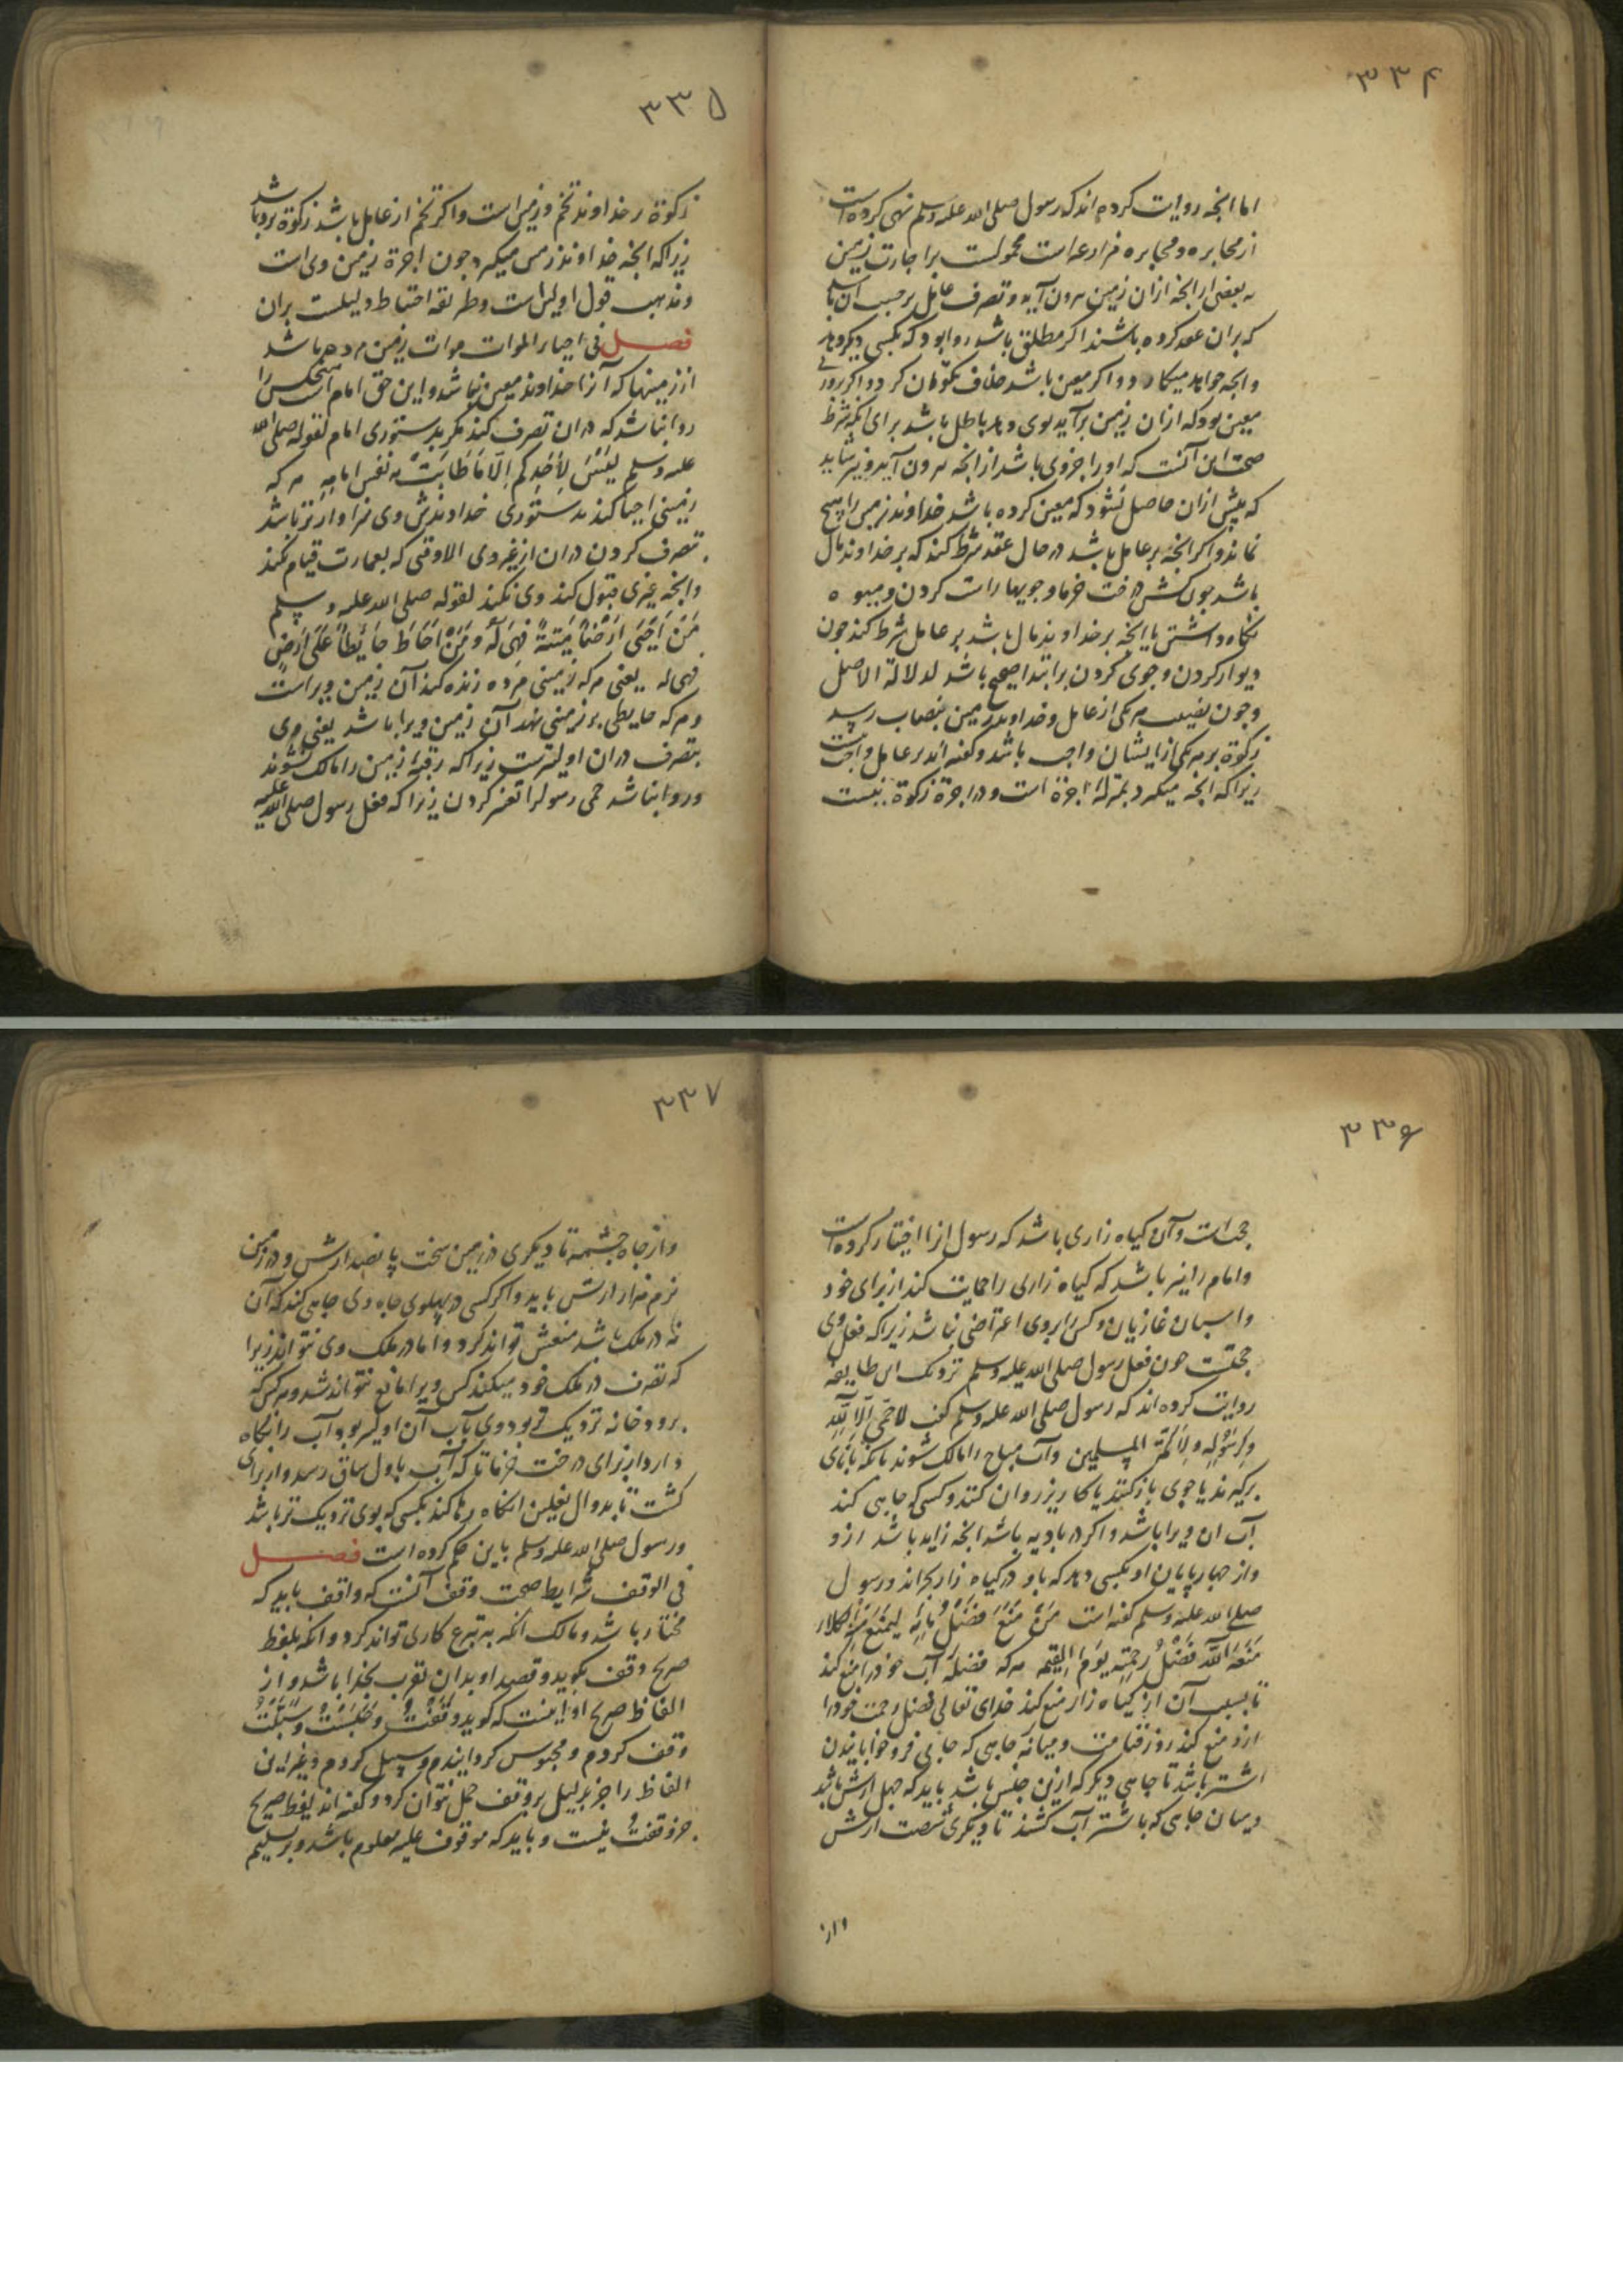 ۳۳۴
اما انجه روایت کرده اند که رسول صلی الله علیه وسلم نهی کرده است
از مخابره و مخابره مزارعه است محمولست بر اجارت زمین
به بعضی از انجه ازان زمین برون آید و تصرف عامل بر حسب آن باشد
که بران عقد کرده باشند اگر مطلق باشد روا بود که بکسی دیگر دهد
وانجه خواهد میکارد و اگر معین باشد خلاف نکوان کرد و اگر روزی
معین بود که ازان زمین برآید بوی دهد باطل باشد برای آنکه شرط
صحت این آنست که او را جزوی باشد از انجه برون آید و نیز شاید
که بیش ازان حاصل نشود که معین کرده باشد خداوند زمین را هیچ
نماند و اگر انجه بر عامل باشد در حال عقد شرط کند که بر خداوند مال
باشد جون کشش درخت خرما و جویها راست کردن و میوه
نگاه داشتن یا انجه بر خداوند مال باشد بر عامل شرط کند جون
دیوار کردن و جوی کردن بر ابتدا صحیح باشد لدلالة الاصل
وجون نصیب هر یکی از عامل و خداوند زمین بنصاب رسد
زکوة بر هر یکی از ایشان واجب باشد و گفته اند بر عامل واجب نیست
زیرا که انجه میگیرد بمنزلهٔ اجرة است و در اجرة زکوة نیست
۳۳۵
زکوة بر خداوند تخم و زمین است و اگر تخم از عامل باشد زکوة برو باشد
زیرا که انجه خداوند زمین میگیرد جون اجرة زمین وی است
ومذهب قول اولین است و طریقه احتیاط دلیلست بران
فصل فی احیاء الموات موات زمین مرده باشد
از زمینها که آنرا خداوند معین نباشد و این حق امام است هیچکس را
روا نباشد که دران تصرف کند مگر بدستوری امام لقوله صلی الله
علیه وسلم لَیْسَ لِأَحَدِکم إلّا مَا طَابَتْ به نَفس اِمامِهِ هر که
زمینی احیا کند بدستوری خداوندش وی سزاوارتر باشد
بتصرف کردن دران از غیر وی الا وقتی که بعمارت قیام نکند
وانجه غیری قبول کند وی نکند لقوله صلی الله علیه وسلم
مَنْ اَحْیَی اَرْضاً مَیْتَةً فَهِیَ لَهُ وَمَنْ اَحَاطَ حَائِطاً عَلَی اَرْضٍ
فهی له یعنی هر که زمینی مرده زنده کند آن زمین ویراست
وهر که حایطی بر زمینی نهد آن زمین ویرا باشد یعنی وی
بتصرف دران اولیترست زیرا که رقبهٔ زمین را مالک نشوند
و روا نباشد حمی رسول را تغیر کردن زیرا که فعل رسول صلی الله علیه
۳۳۶
حجتست و آن گیاه زاری باشد که رسول آنرا اختیار کرده است
وامام را نیز باشد که گیاه زاری را حمایت کند از برای خود
واسبان غازیان و کس را بروی اعتراضی نباشد زیرا که فعل وی
حجتست جون فعل رسول صلی الله علیه وسلم نزدیک این طایفه
روایت کرده اند که رسول صلی الله علیه وسلم گفت لا حِمَی اِلّا لِلّهِ
وَلِرَسُولِهِ وَلِأَئمّةِ المسلمین و آب مباح را مالک شوند بآنکه بانای
برگیرند یا جوی بازکنند یا کاریز روان کنند و کسی که جاهی کند
آب ان ویرا باشد و اگر در بادیه باشد انجه زاید باشد ازو
واز جهارپایان او بکسی دهد که با او در گیاه زار بجراند و رسول
صلی الله علیه وسلم گفته است مَنْ مَنَعَ فَضْلَ مَائِهِ لِیَمنَعَ بِهِ الکلاء
مَنَعَهُ اللّهُ فَضْلَ رَحمَتِهِ یَومَ القیمه هر که فضلهٔ آب خود را منع کند
تا بسبب آن از گیاه زار منع کند خدای تعالی فضل رحمت خود را
ازو منع کند روز قیامت و میانهٔ جاهی که جای فرو خوابانیدن
اشتر باشد تا جاهی دیگر که ازین جنس باشد باید که جهل ارش باشد
ومیان جاهی که باشتر آب کشند تا دیگری شصت ارش
واز
۳۳۷
واز جاه جشمه تا دیگری در زمین سخت پانصد ارش و در زمین
نرم هزار ارش باید و اگر کسی در پهلوی جاه وی جاهی کند که آن
نه در ملک باشد منعش تواند کرد و اما در ملک وی نتواند زیرا
که تصرف در ملک خود میکند کس ویرا مانع نتواند شد و هر کس که
برودخانه نزدیک تر بود وی بآب آن اولیتر بود آب را نگاه
دارد از برای درخت خرما تا که آب باول ساق رسد و از برای
کشت تا بدوال نعلین انگاه رها کند بکسی که بوی نزدیک تر باشد
ورسول صلی الله علیه وسلم باین حکم کرده است فصل
فی الوقف شرایط صحت وقف آنست که واقف باید که
مختار باشد و مالک انکه به تبرع کاری تواند کرد و انکه بلفظ
صریح وقف بگوید و قصد او بدان تقرب بخدا باشد و از
الفاظ صریح او اینست که گوید وَقَفْتُ وَحَبَسْتُ وَسَبَّلْتُ
وقف کردم و محبوس گردانیدم و سبیل کردم و غیر این
الفاظ را جز بدلیل بر وقف حمل نتوان کرد و گفته اند لفظ صریح
جز وَقَفْتُ نیست و باید که موقوف علیه معلوم باشد و بر تسلیم